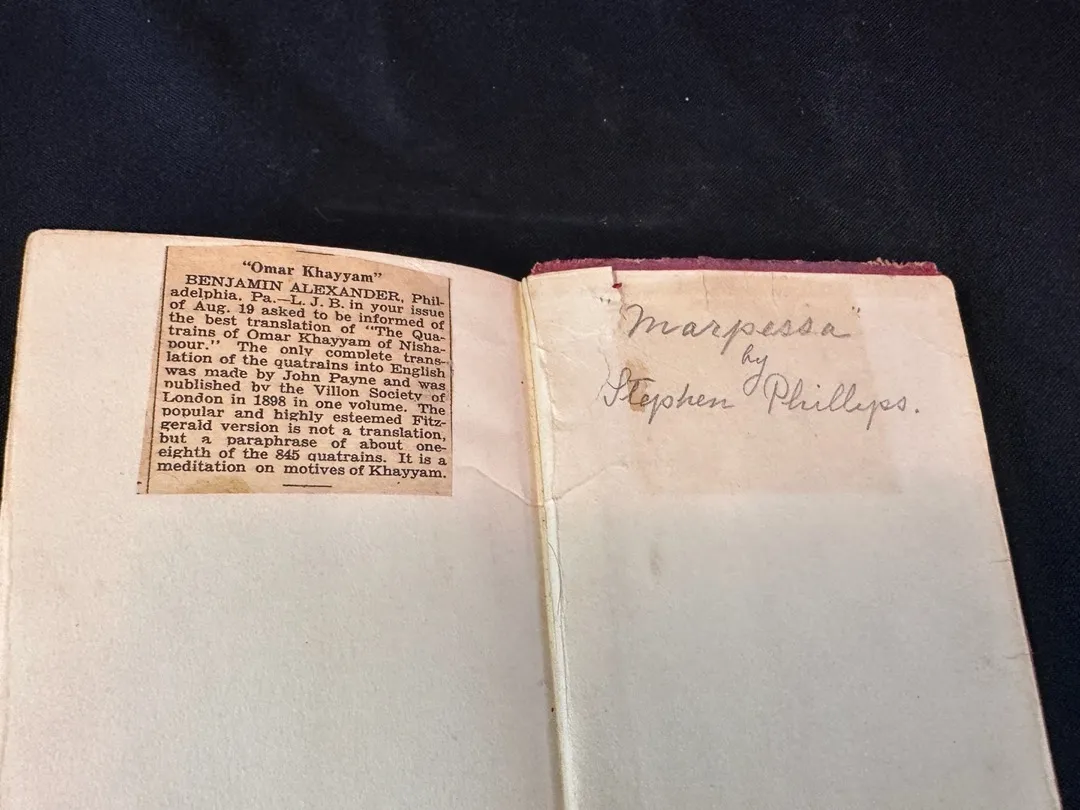 "Omar Khayyam"
BENJAMIN ALEXANDER, Phil-
adelphia, Pa.—L. J. B. in your issue
of Aug. 19 asked to be informed of
the best translation of "The Qua-
trains of Omar Khayyam of Nisha-
pour." The only complete trans-
lation of the quatrains into English
was made by John Payne and was
published by the Villon Society of
London in 1898 in one volume. The
popular and highly esteemed Fitz-
gerald version is not a translation,
but a paraphrase of about one-
eighth of the 845 quatrains. It is a
meditation on motives of Khayyam.
"Marpessa"
by
Stephen Phillips.